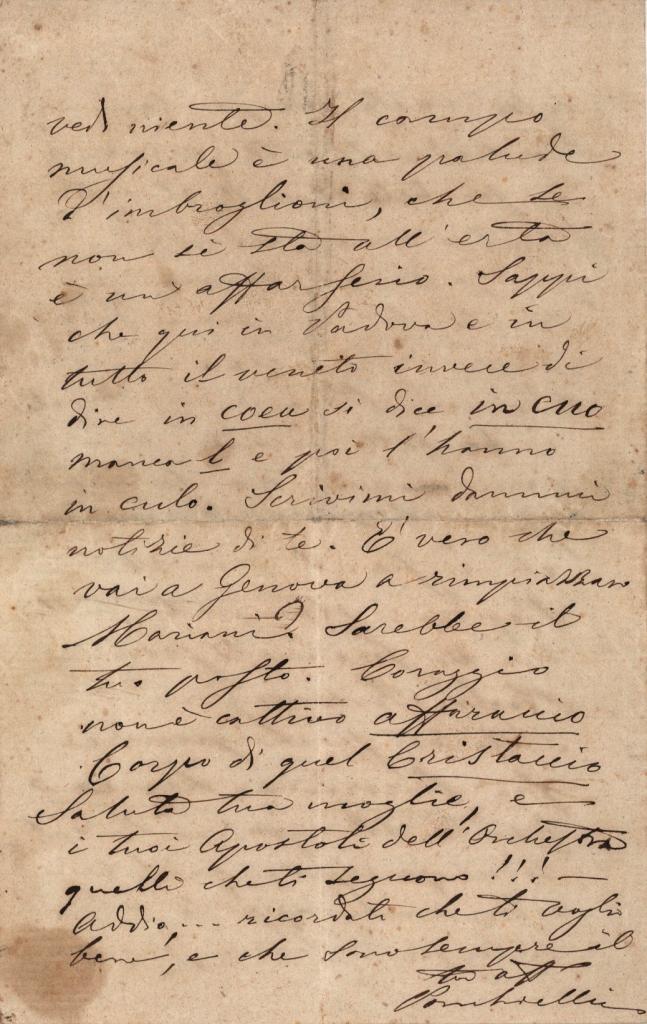 vedi niente. Il campo
musicale è una palude
d'imbroglioni, che se
non si sta all'erta
è un affar serio. Sappi
che qui in Padova e in
tutto il veneto invece di
dire in coeu si dice in cuo
manca l e poi l'hanno
in culo. Scrivimi dammi
notizie di te. E' vero che
vai a Genova a rimpiazzare
Mariani? Sarebbe il
tuo posto. Coraggio
non è cattivo affaraccio
Corpo di quel Cristaccio
Saluta tua moglie, e
i tuoi Apostoli dell'Orchestra
quelli che ti seguono!!! —
Addio,... ricordati che ti voglio
bene, e che sono sempre il
tuo aff
Ponchielli